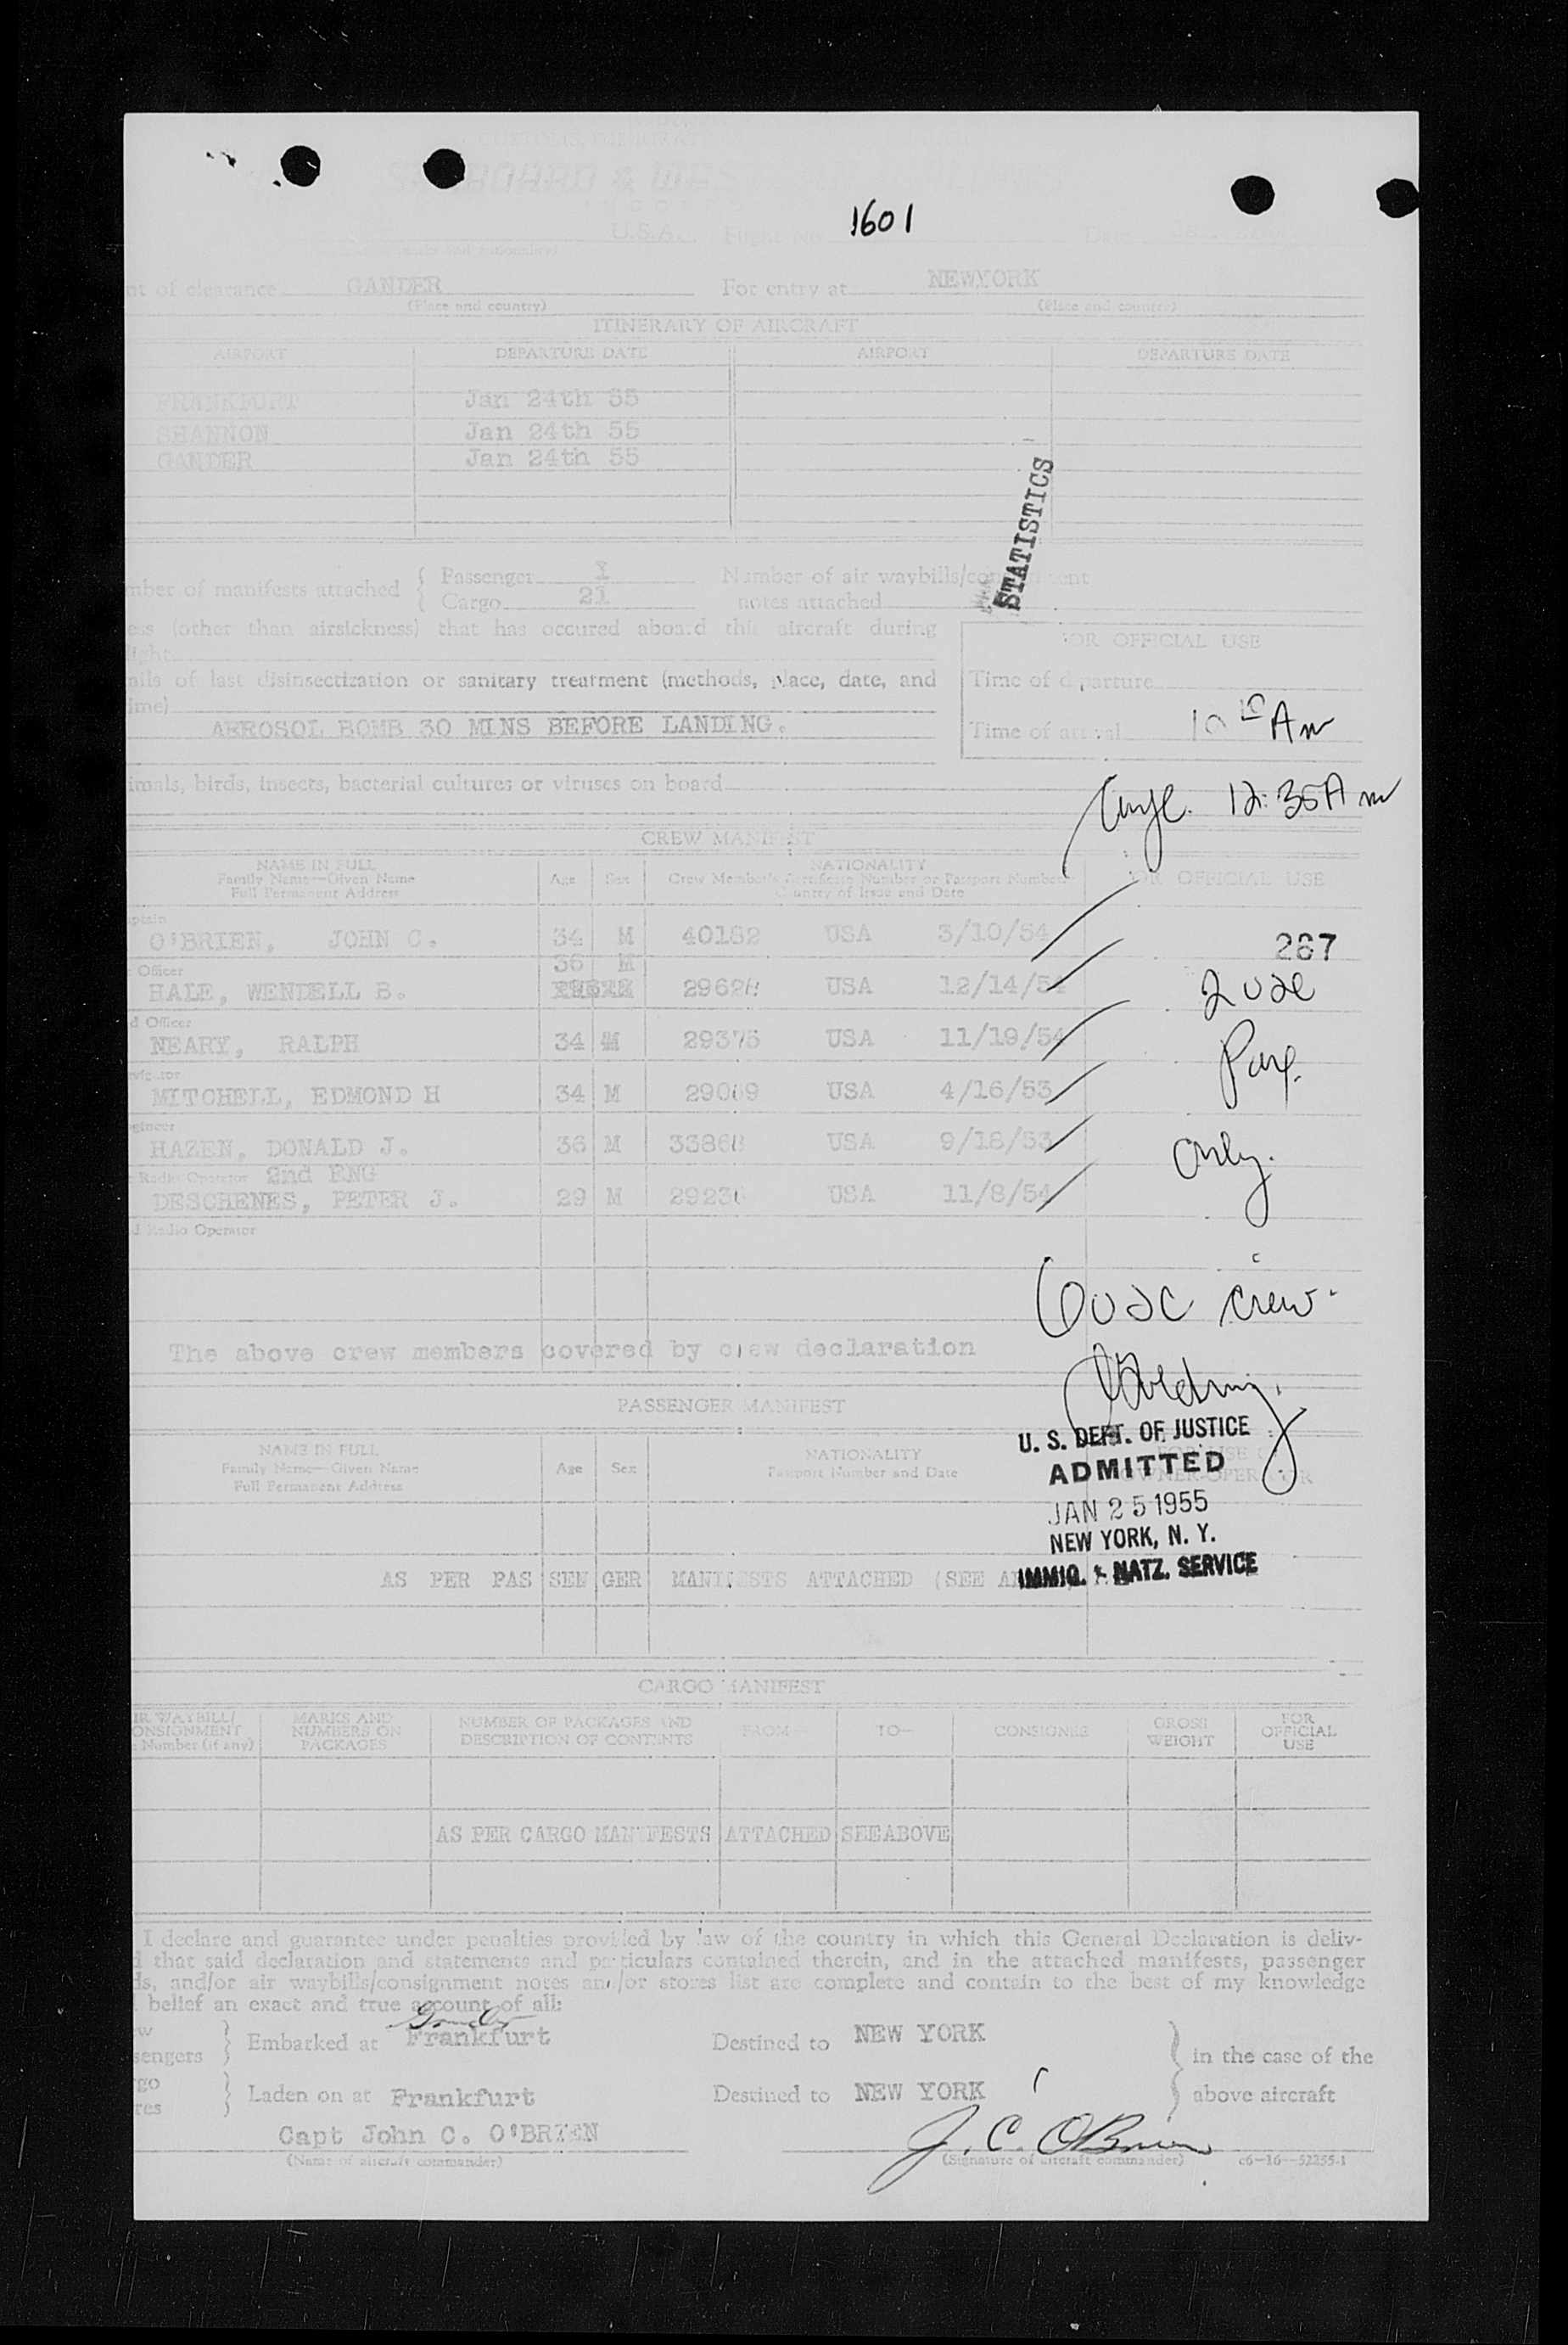 SEABOARD & WESTERN AIRLINES
1601
U.S.A. Flight No. Date
nt of clearance GANDER For entry at NEWYORK
(Place and country) (Place and country)
ITINERARY OF AIRCRAFT
AIRPORT DEPARTURE DATE AIRPORT DEPARTURE DATE
FRANKFURT Jan 24th 55
SHANNON Jan 24th 55
GANDER Jan 24th 55
STATISTICS
mber of manifests attached { Passenger 1 Number of air waybills/con ent
Cargo 21 notes attached
ess (other than airsickness) that has occured aboard this aircraft during
light
ails of last disinsectization or sanitary treatment (methods, place, date, and
ime)
AEROSOL BOMB 30 MINS BEFORE LANDING.
FOR OFFICIAL USE
Time of departure
Time of arrival 10 15 Am
imals, birds, insects, bacterial cultures or viruses on board
12:35 Am
CREW MANIFEST
NAME IN FULL
Family Name—Given Name
Full Permanent Address
Age Sex
NATIONALITY
Crew Member's Certificate Number or Passport Number
Country of Issue and Date
FOR OFFICIAL USE
ptain
O'BRIEN, JOHN C. 34 M 40182 USA 3/10/54
267
Officer 36 M
HALE, WENDELL B. 29628 USA 12/14/54
d Officer
NEARY, RALPH 34 M 29375 USA 11/19/54
vigator
MITCHELL, EDMOND H 34 M 29009 USA 4/16/53
gineer
HAZEN, DONALD J. 36 M 33868 USA 9/18/53
Radio Operator 2nd ENG
DESCHENES, PETER J. 29 M 29236 USA 11/8/54
d Radio Operator
2 USC
Pax.
only.
6 USC crew.
The above crew members covered by crew declaration
PASSENGER MANIFEST
NAME IN FULL
Family Name—Given Name
Full Permanent Address
Age Sex
NATIONALITY
Passport Number and Date
FOR USE O
OWNER-OPERATOR
U. S. DEPT. OF JUSTICE
ADMITTED
JAN 25 1955
NEW YORK, N. Y.
IMMIG. & NATZ. SERVICE
AS PER PAS SEN GER MANIFESTS ATTACHED (SEE A
CARGO MANIFEST
IR WAYBILL/
ONSIGNMENT
Number (if any)
MARKS AND
NUMBERS ON
PACKAGES
NUMBER OF PACKAGES AND
DESCRIPTION OF CONTENTS
FROM— TO— CONSIGNEE
GROSS
WEIGHT
FOR
OFFICIAL
USE
AS PER CARGO MANIFESTS ATTACHED SEE ABOVE
I declare and guarantee under penalties provided by law of the country in which this General Declaration is deliv-
d that said declaration and statements and particulars contained therein, and in the attached manifests, passenger
ds, and/or air waybills/consignment notes and/or stores list are complete and contain to the best of my knowledge
belief an exact and true account of all:
Gander
w
sengers } Embarked at Frankfurt Destined to NEW YORK } in the case of the
go
res } Laden on at Frankfurt Destined to NEW YORK } above aircraft
Capt John C. O'BRIEN J. C. O'Brien
(Name of aircraft commander) (Signature of aircraft commander) c6—16—52255-1